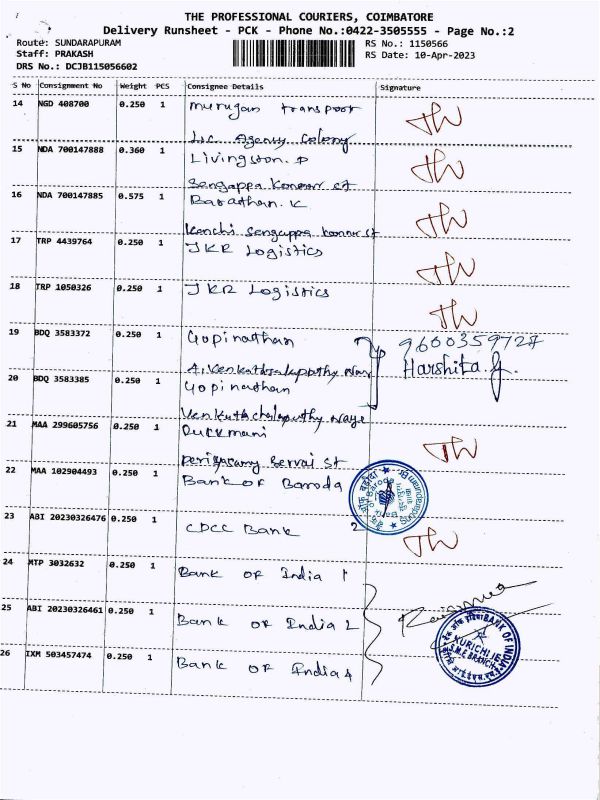 THE PROFESSIONAL COURIERS, COIMBATORE
Delivery Runsheet - PCK - Phone No.:0422-3505555 - Page No.:2
Route: SUNDARAPURAM
RS No.: 1150566
Staff: PRAKASH
RS Date: 10-Apr-2023
DRS No.: DCJB115056602
S No Consignment No Weight PCS Consignee Details Signature
14 NGD 408700 0.250 1 Murugan transport
Lic. Agency Colony
15 NDA 700147888 0.360 1 Livingston. P
Sengappa Konnar st
16 NDA 700147885 0.575 1 Barathan. K
Kanchi Sengappa Konnar st
17 TRP 4439764 0.250 1 JKR Logistics
18 TRP 1050326 0.250 1 JKR Logistics
19 BDQ 3583372 0.250 1 Gopinathan 9600359727
A. Harshita.
20 BDQ 3583385 0.250 1 Gopinathan
21 MAA 299605756 0.250 1 Ruckmani
Servai St
22 MAA 102904493 0.250 1 Bank of Baroda
23 ABI 20230326476 0.250 1 CDCC Bank
24 MTP 3032632 0.250 1 Bank of India 1
25 ABI 20230326461 0.250 1 Bank of India 2
26 IXM 503457474 0.250 1 Bank of India 4
BANK OF INDIA
KURICHI IE
S.M.E BRANCH